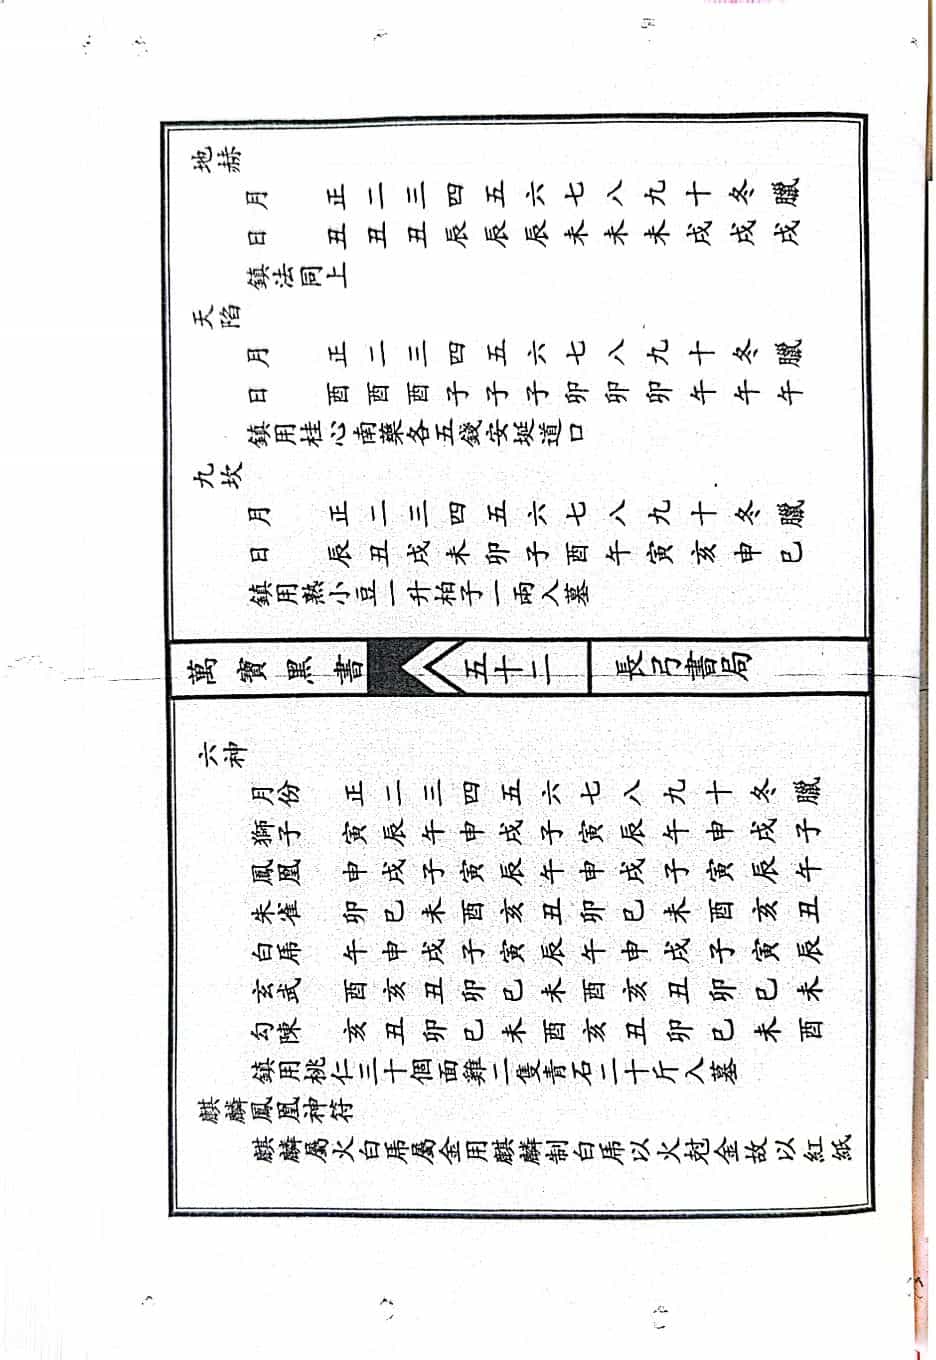 地赫
月 正二三四五六七八九十冬臘
日 丑丑丑辰辰辰未未未戌戌戌
鎮法同上
天陷
月 正二三四五六七八九十冬臘
日 酉酉酉子子子卯卯卯午午午
鎮用桂心南藥各五錢安埏道口
九坎
月 正二三四五六七八九十冬臘
日 辰丑戌未卯子酉午寅亥申巳
鎮用熟小豆一升柏子一兩入墓
萬寶黑書 五十二 長弓書局
六神
月份 正二三四五六七八九十冬臘
獅子 寅辰午申戌子寅辰午申戌子
鳳凰 申戌子寅辰午申戌子寅辰午
朱雀 卯巳未酉亥丑卯巳未酉亥丑
白虎 午申戌子寅辰午申戌子寅辰
玄武 酉亥丑卯巳未酉亥丑卯巳未
勾陳 亥丑卯巳未酉亥丑卯巳未酉
鎮用桃仁三十個面雞二隻青石二十斤入墓
麒麟鳳凰神符
麒麟屬火白虎屬金用麒麟制白虎以火尅金故以紅紙